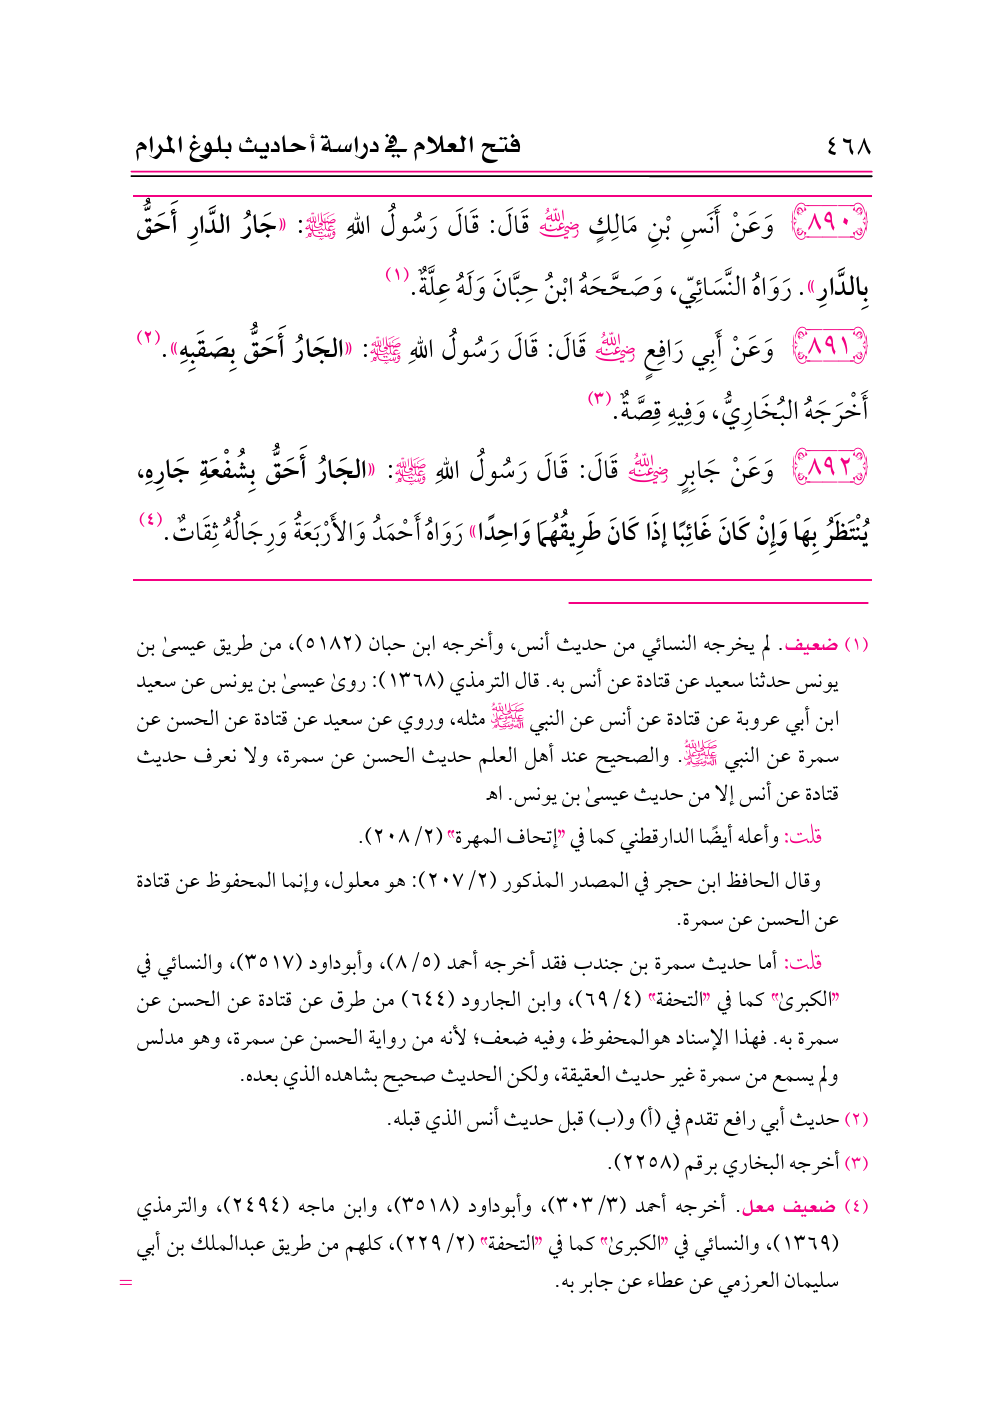 ٤٦٨
فتح العلام في دراسة أحاديث بلوغ المرام
٨٩٠ وَعَنْ أَنَسِ بْنِ مَالِكٍ رضي الله عنه قَالَ: قَالَ رَسُولُ اللهِ ﷺ: «جَارُ الدَّارِ أَحَقُّ
بِالدَّارِ». رَوَاهُ النَّسَائِيّ، وَصَحَّحَهُ ابْنُ حِبَّانَ وَلَهُ عِلَّةٌ.(١)
٨٩١ وَعَنْ أَبِي رَافِعٍ رضي الله عنه قَالَ: قَالَ رَسُولُ اللهِ ﷺ: «الجَارُ أَحَقُّ بِصَقَبِهِ».(٢)
أَخْرَجَهُ البُخَارِيُّ، وَفِيهِ قِصَّةٌ.(٣)
٨٩٢ وَعَنْ جَابِرٍ رضي الله عنه قَالَ: قَالَ رَسُولُ اللهِ ﷺ: «الجَارُ أَحَقُّ بِشُفْعَةِ جَارِهِ،
يُنْتَظَرُ بِهَا وَإِنْ كَانَ غَائِبًا إذَا كَانَ طَرِيقُهُمَا وَاحِدًا» رَوَاهُ أَحْمَدُ وَالأَرْبَعَةُ وَرِجَالُهُ ثِقَاتٌ.(٤)
(١) ضعيف. لم يخرجه النسائي من حديث أنس، وأخرجه ابن حبان (٥١٨٢)، من طريق عيسىٰ بن
يونس حدثنا سعيد عن قتادة عن أنس به. قال الترمذي (١٣٦٨): روىٰ عيسىٰ بن يونس عن سعيد
ابن أبي عروبة عن قتادة عن أنس عن النبي ﷺ مثله، وروي عن سعيد عن قتادة عن الحسن عن
سمرة عن النبي ﷺ. والصحيح عند أهل العلم حديث الحسن عن سمرة، ولا نعرف حديث
قتادة عن أنس إلا من حديث عيسىٰ بن يونس. اهـ
قلت: وأعله أيضًا الدارقطني كما في "إتحاف المهرة" (٢/ ٢٠٨).
وقال الحافظ ابن حجر في المصدر المذكور (٢/ ٢٠٧): هو معلول، وإنما المحفوظ عن قتادة
عن الحسن عن سمرة.
قلت: أما حديث سمرة بن جندب فقد أخرجه أحمد (٥/ ٨)، وأبوداود (٣٥١٧)، والنسائي في
"الكبرىٰ" كما في "التحفة" (٤/ ٦٩)، وابن الجارود (٦٤٤) من طرق عن قتادة عن الحسن عن
سمرة به. فهذا الإسناد هوالمحفوظ، وفيه ضعف؛ لأنه من رواية الحسن عن سمرة، وهو مدلس
ولم يسمع من سمرة غير حديث العقيقة، ولكن الحديث صحيح بشاهده الذي بعده.
(٢) حديث أبي رافع تقدم في (أ) و(ب) قبل حديث أنس الذي قبله.
(٣) أخرجه البخاري برقم (٢٢٥٨).
(٤) ضعيف معل. أخرجه أحمد (٣/ ٣٠٣)، وأبوداود (٣٥١٨)، وابن ماجه (٢٤٩٤)، والترمذي
(١٣٦٩)، والنسائي في "الكبرىٰ" كما في "التحفة" (٢/ ٢٢٩)، كلهم من طريق عبدالملك بن أبي
سليمان العرزمي عن عطاء عن جابر به. =